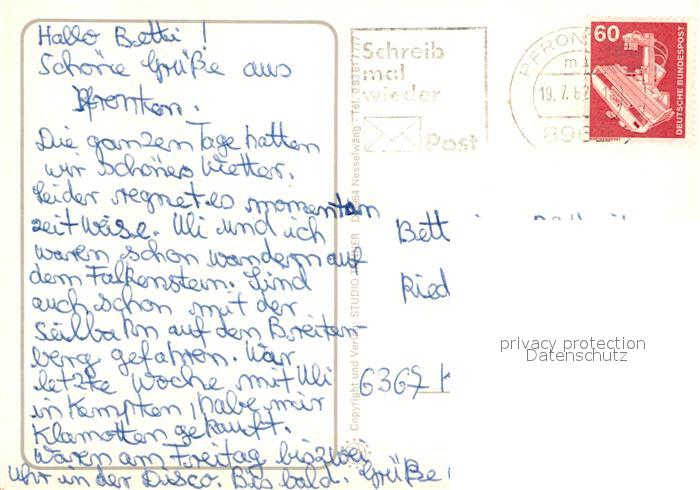 Hallo Betti !
Schöne Grüße aus
Pfronten.
Die ganzen Tage hatten
wir schönes Wetter.
Leider regnet es momentan
zeitweise. Uli und ich
waren schon wandern auf
dem Falkenstein. Sind
auch schon mit der
Seilbahn auf den Breiten-
berg gefahren. War
letzte Woche mit Uli
in Kempten, habe mir
Klamotten gekauft.
Waren am Freitag bis zwei
Uhr in der Disco. Bis bald. Grüße
Schreib
mal
wieder
Post
PFRON
19. 7. 82
896
60
DEUTSCHE BUNDESPOST
Copyright und Verlag: STUDIO
64 Nesselwang · Tel. 0 83 61 / 7 77
Bett
Ried
6367 K
privacy protection
Datenschutz